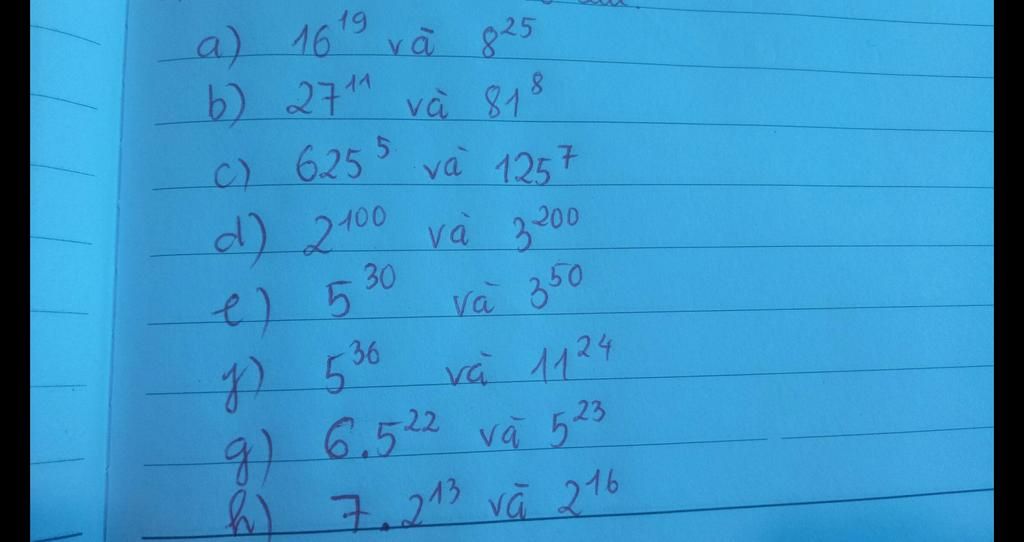 a) 16¹⁹ và 8²⁵
b) 27¹¹ và 81⁸
c) 625⁵ và 125⁷
d) 2¹⁰⁰ và 3²⁰⁰
e) 5³⁰ và 3⁵⁰
f) 5³⁶ và 11²⁴
g) 6.5²² và 5²³
h) 7.2¹³ và 2¹⁶